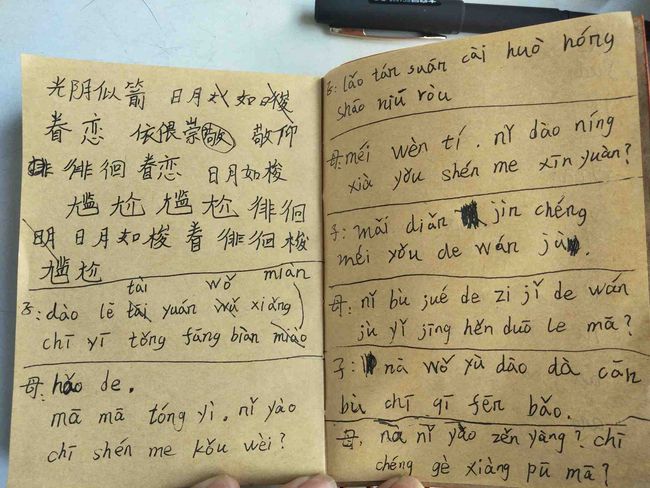 光阴似箭 日月 如日梭
眷恋 依偎崇 敬仰
徘徊眷恋 日月如梭
尴尬尴尬徘徊
明日月如梭眷徘徊梭
尴尬
tài wǒ miàn
子:dào lē yuán xiǎng
chī yī tǒng fāng biàn
母:hǎo de.
mā mā tóng yì. nǐ yào
chī shén me kǒu wèi?
子:lǎo tán suān cài huò hóng
shāo niú ròu
母:méi wèn tí. nǐ dào níng
xià yǒu shén me xīn yuàn?
子:mǎi diǎn jìn chéng
méi yǒu de wán jù.
母:nǐ bù jué de zì jǐ de wán
jù yǐ jīng hěn duō le mā?
子:nà wǒ yù dào dà cān
bù chī qī fēn bǎo.
母,nà nǐ yào zěn yàng? chī
chéng gè xiàng pū mā?